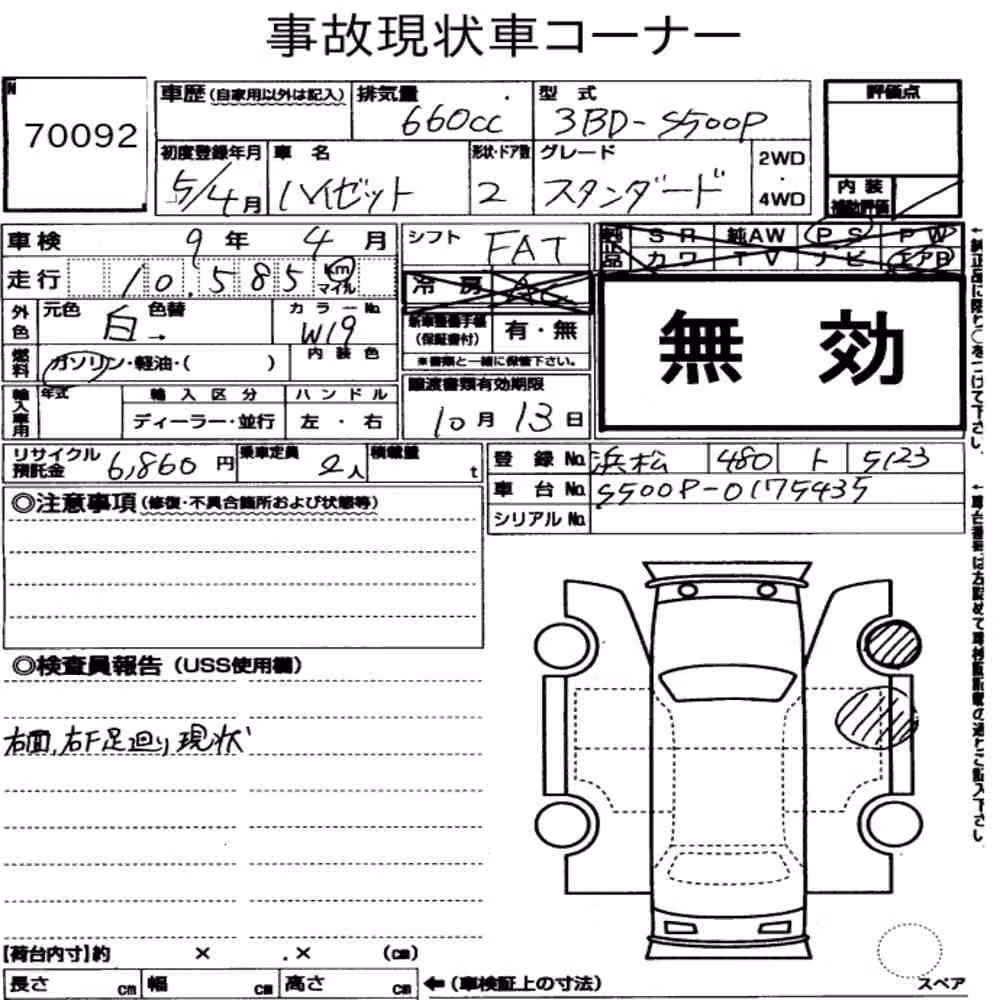 事故現状車コーナー
N
70092
車歴(自家用以外は記入)
排気量
660cc
型式
3BD-S500P
評価点
初度登録年月
5/4月
車名
ハイゼット
形状・ドア数
2
グレード
スタンダード
2WD
・
4WD
内装
補助評価
車検 9年 4月
シフト
FAT
純正品
SR 純AW PS PW
カワ TV ナビ エアB
走行 10,585 km
マイル
冷房 AC
外色
元色 白→ 色替
カラーNo.
W19
新車整備手帳
(保証書付)
有・無
※書類と一緒に保管下さい。
無効
燃料
ガソリン・軽油・( )
内装色
譲渡書類有効期限
10月13日
輸入車用
年式
輸入区分
ディーラー・並行
ハンドル
左・右
リサイクル
預託金
6,860円
乗車定員
2人
積載量
t
登録No. 浜松 480 ト 5123
車台No. S500P-0175435
シリアルNo.
◎注意事項(修復・不具合箇所および状態等)
◎検査員報告(USS使用欄)
右面,右F足廻り現状
[荷台内寸]約 × × (cm)
長さ cm 幅 cm 高さ cm ←(車検証上の寸法)
スペア